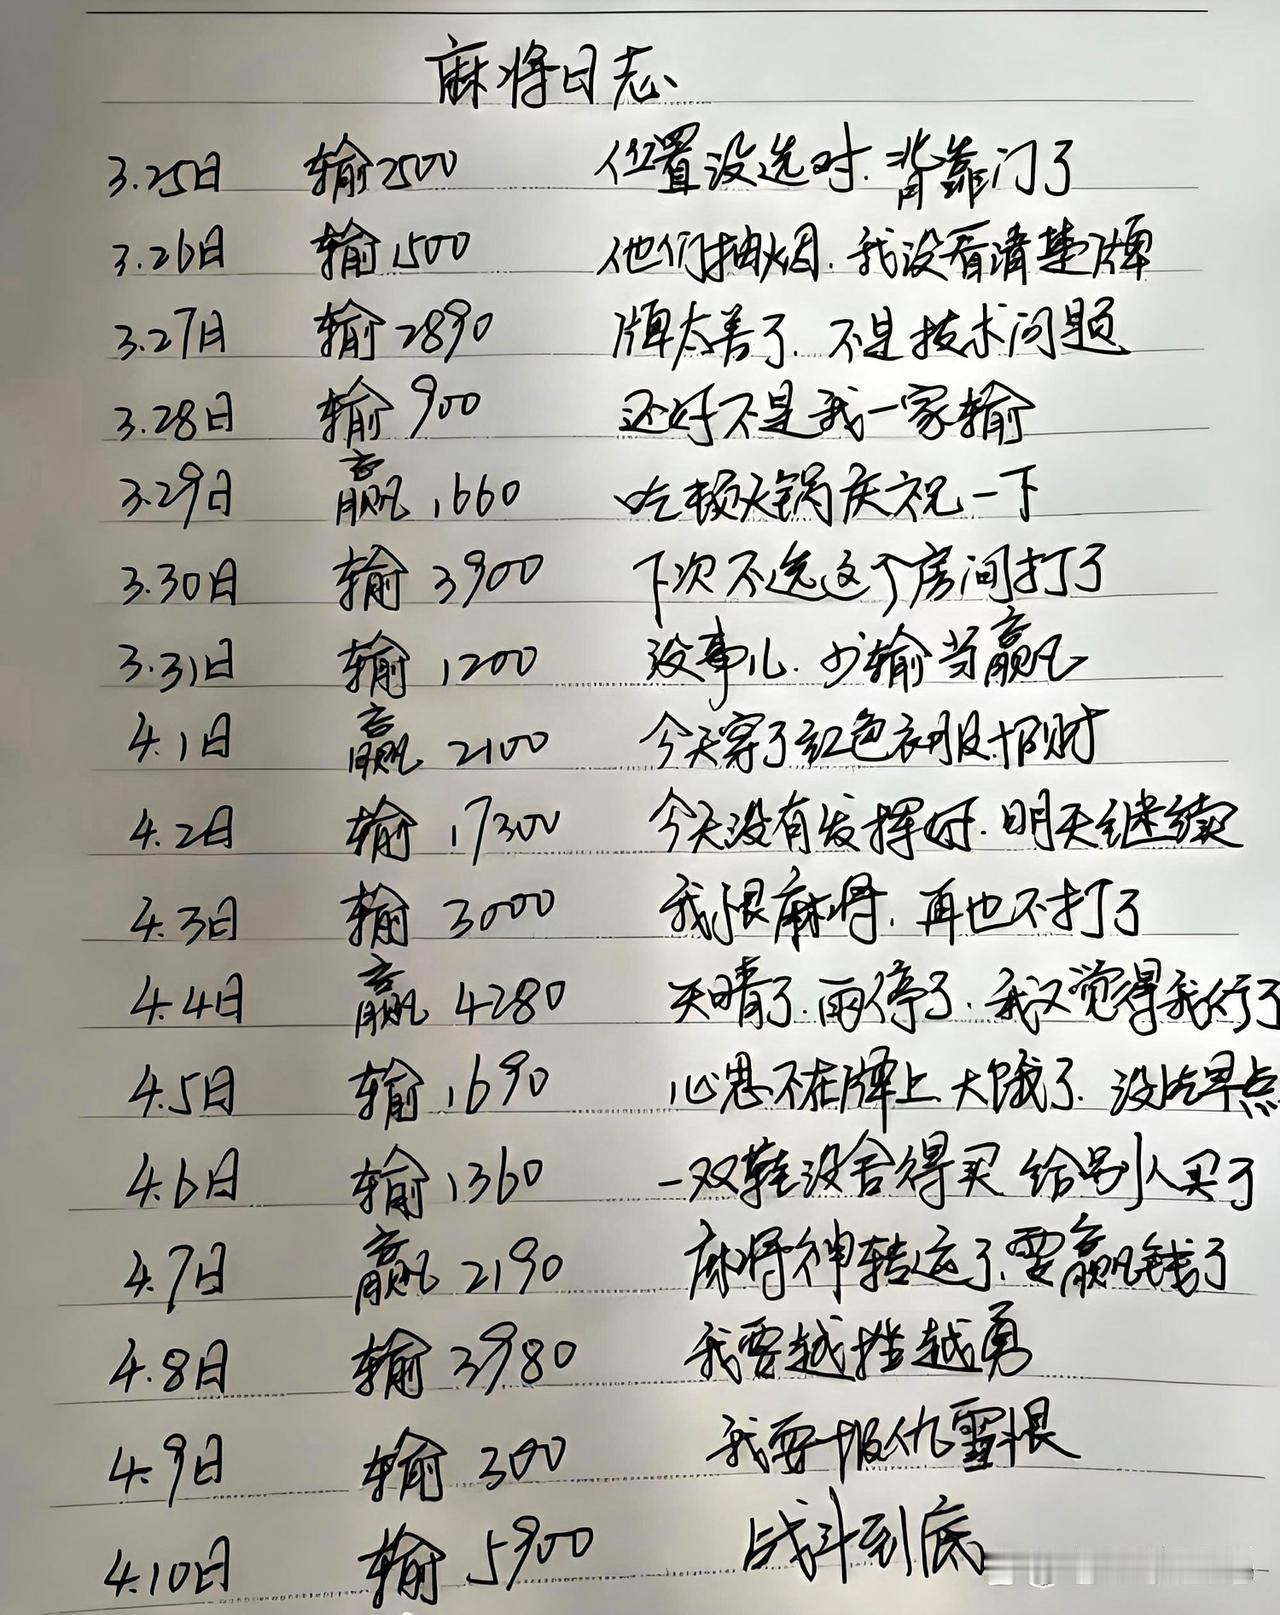 麻将日志
3.25日 输2500 位置没选对.背靠门了
3.26日 输1500 他们抽烟.我没看清楚牌
3.27日 输2890 牌太差了.不是技术问题
3.28日 输900 还好不是我一家输
3.29日 赢1660 吃顿火锅庆祝一下
3.30日 输3900 下次不选这个房间打了
3.31日 输1200 没事儿.少输当赢
4.1日 赢2100 今天穿了红色衣服.招财
4.2日 输17300 今天没有发挥好.明天继续
4.3日 输3000 我恨麻将.再也不打了
4.4日 赢4280 天晴了.雨停了.我又觉得我行了
4.5日 输1690 心思不在牌上 大饿了.没吃早点
4.6日 输1360 一双鞋没舍得买 给别人买了
4.7日 赢2190 麻将神转运了.要赢钱了
4.8日 输3980 我要越挫越勇
4.9日 输300 我要报仇雪恨
4.10日 输5900 战斗到底